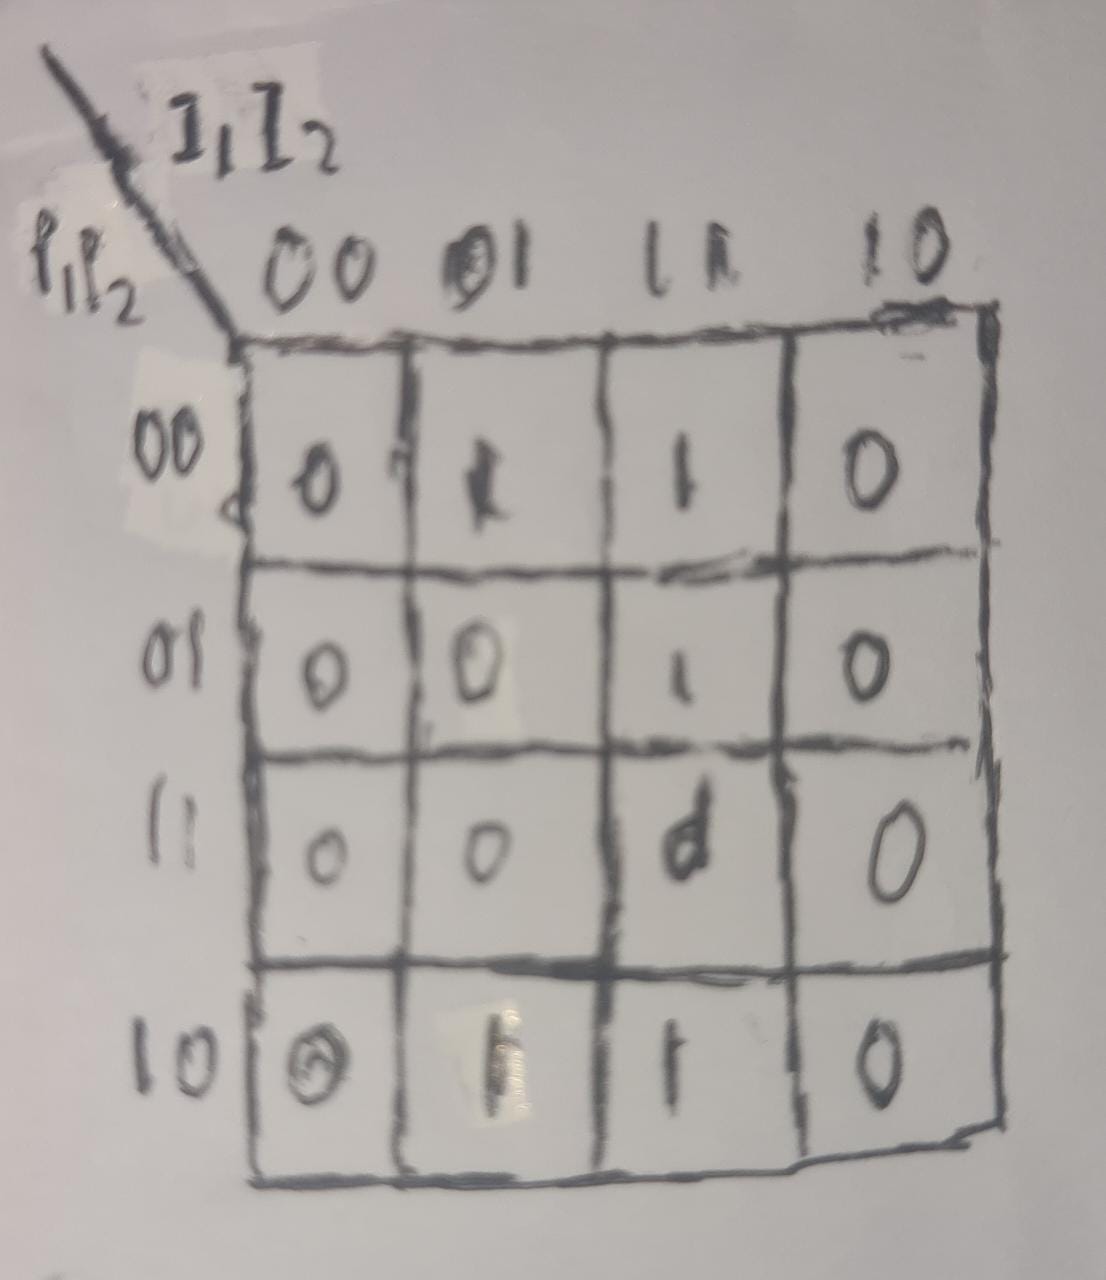 I₁I₂
P₁P₂
00 01 11 10
00 0 1 1 0
01 0 0 1 0
11 0 0 d 0
10 0 1 1 0